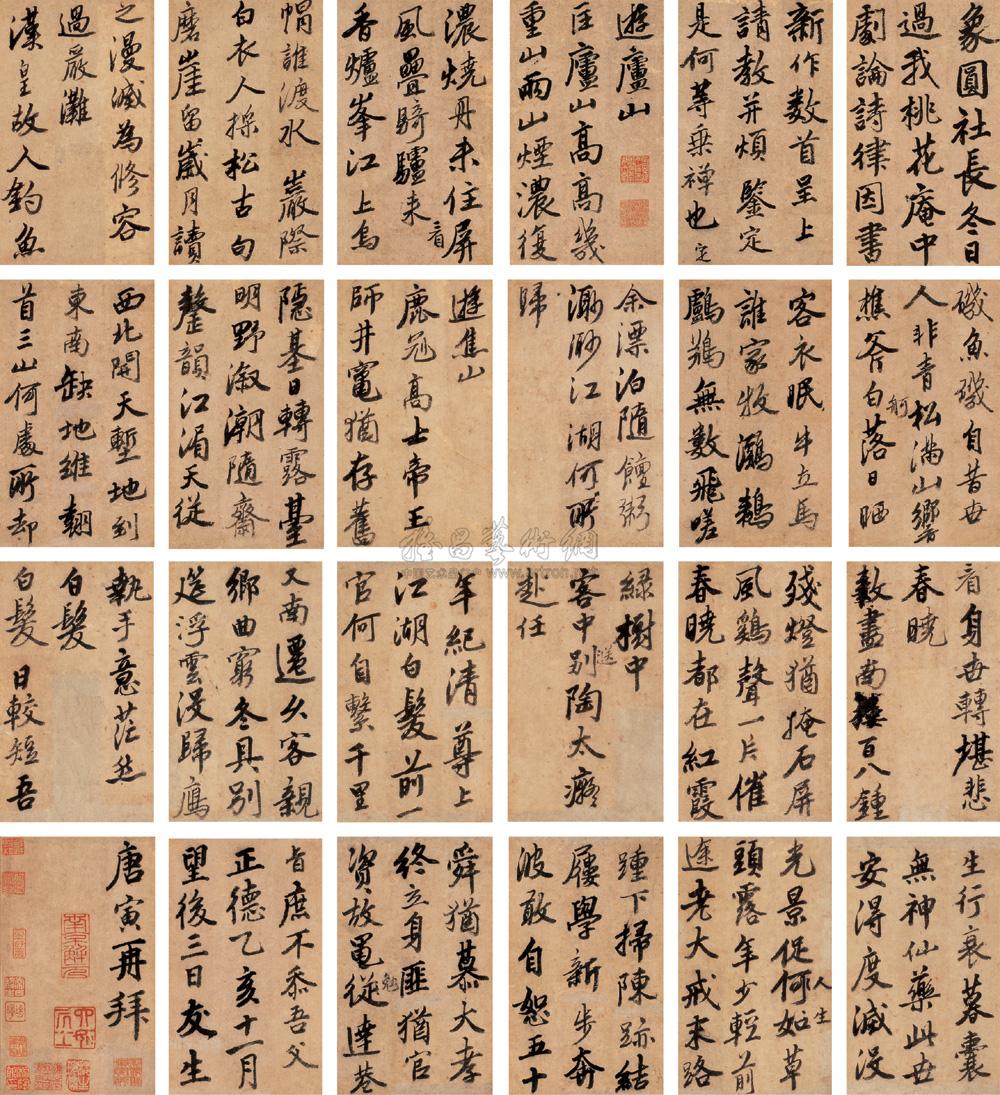 象圓社長冬日
過我桃花庵中
劇論詩律因書
新作数首呈上
請教并煩鑒定
是何等乘禅也定
遊廬山
匡廬山高高幾
重山雨山煙濃復
濃燒丹未住屏
風疊騎驢来看
香爐峯江上烏
帽誰渡水巖際
白衣人採松古句
磨崖留嵗月讀
之漫滅為修容
過嚴灘
漢皇故人釣魚
磯魚磯自昔世
人非青松滿山響
樵斧白舸落日晒
客衣眠牛立馬
誰家牧鸂鶒
鸕鶿無數飛嗟
余漂泊隨饘粥
渺渺江湖何所
歸
遊焦山
鹿裘高士帝王
師井竃猶存舊
隱基日轉露臺
明野溆潮隨齋
磬韻江湄天從
西北開天塹地到
東南缺地維翹
首三山何處所却
看身世轉堪悲
春曉
數盡南樓百八鍾
殘燈猶掩石屏
風鷄聲一片催
春曉都在紅霞
緑樹中
客中送别陶太癡
赴任
年紀清尊上
江湖白髮前一
官何自繫千里
又南遷久客親
鄉曲窮冬具别
筵浮雲没歸鴈
執手意茫然
白髮
白髮日較短吾
生行衰暮囊
無神仙藥此世
安得度滅没
光景促何如草
頭露年少輕前
途老大戒来路
踵下掃陳跡結
屨學新步奔
波敢自恕五十
舜猶慕大孝
終立身匪猶官
資放黽勉從達巷
旨庶不忝吾父
正德乙亥十一月
望後三日友生
唐寅再拜
雅昌藝術網